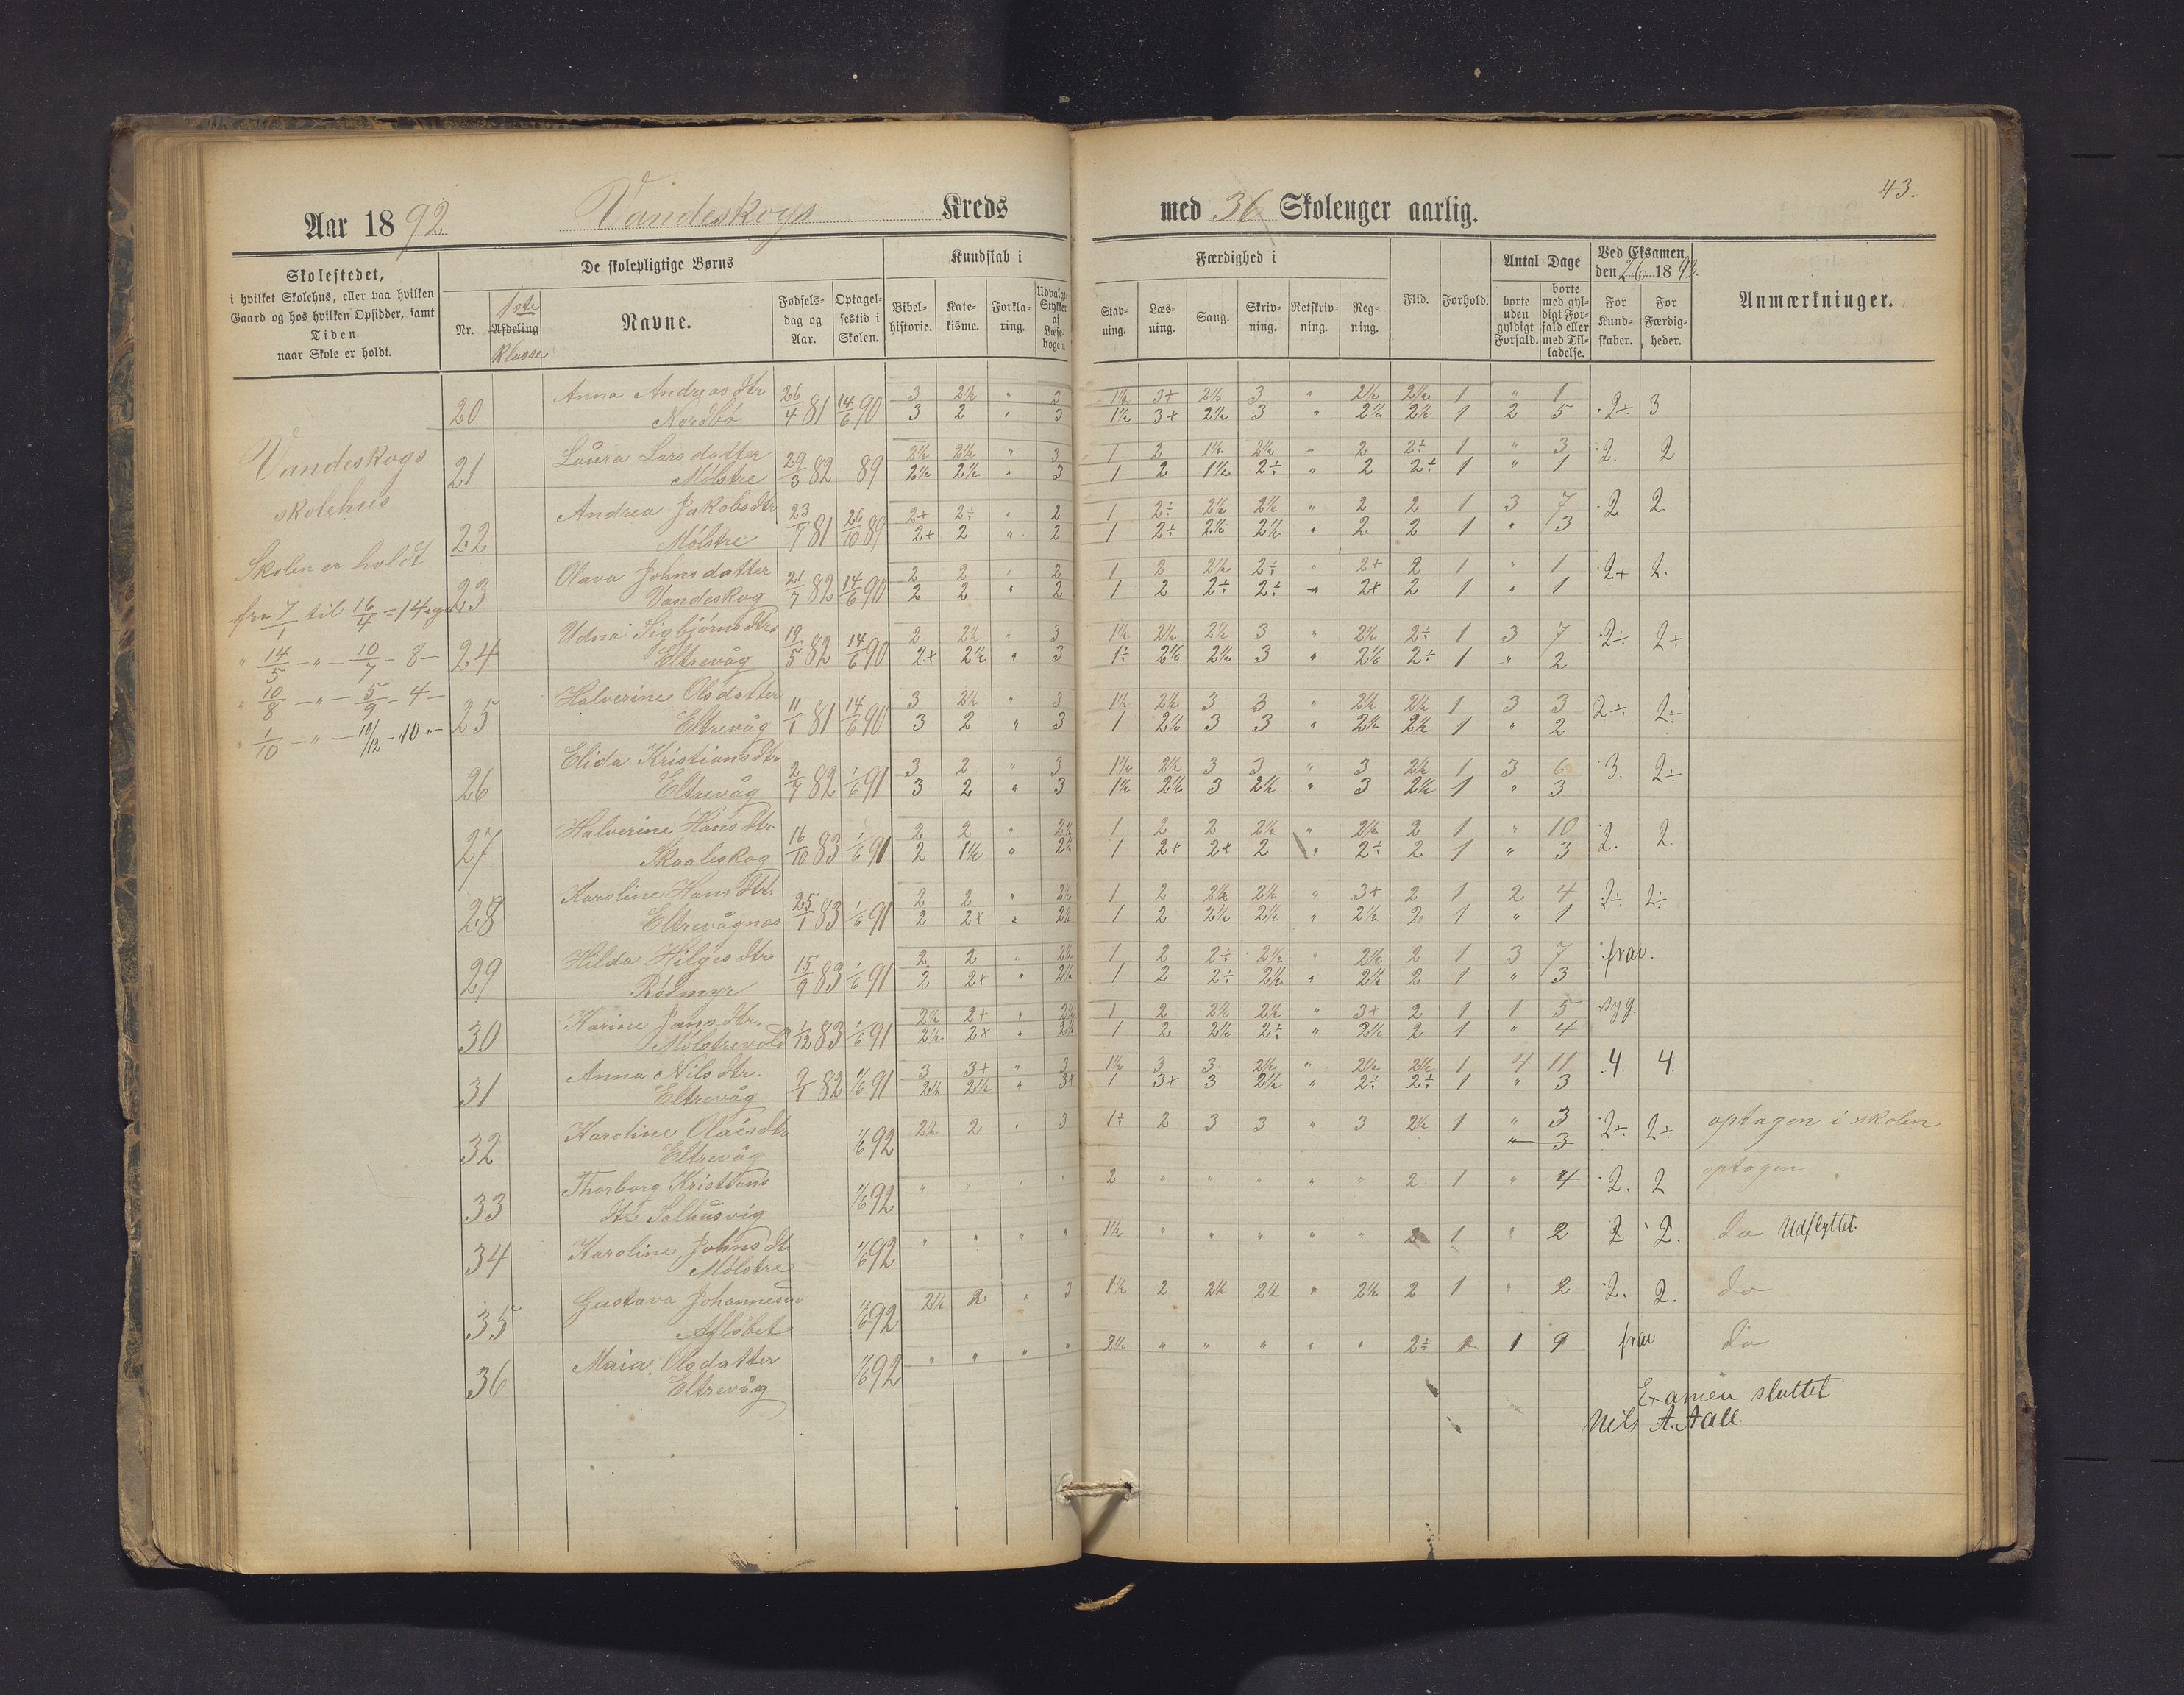 43.
Aar 1892 Vandeskogs Kreds med 36 Skoleuger aarlig.
Skolestedet,
i hvilket Skolehus, eller paa hvilken
Gaard og hos hvilken Opsidder, samt
Tiden
naar Skole er holdt.
De skolepligtige Børns
Nr.
1ste
Afdeling
Klasse
Navne.
Fødsels-
dag og
Aar.
Optagel-
sestid i
Skolen.
Kundskab i
Bibel-
historie.
Kate-
kisme.
Forkla-
ring.
Udvalgte
Stykker
af
Læse-
bogen.
Færdighed i
Stav-
ning.
Læs-
ning.
Sang.
Skriv-
ning.
Retskriv-
ning.
Reg-
ning.
Flid.
Forhold.
Antal Dage
borte
uden
gyldigt
Forfald.
borte
med gyl-
digt For-
fald eller
med Til-
ladelse.
Ved Eksamen
den 2/6 1893.
For
Kund-
skaber.
For
Færdig-
heder.
Anmærkninger.
Vandeskogs
skolehus
Skolen er holdt
fra 7/1 til 16/4 = 14 uger
" 14/5 - " - 10/7 - 8 -
" 10/8 - " - 5/9 - 4 -
" 1/10 - " - 10/12 - 10 - " -
20 Anna Andreasdtr 26/4 81 14/6 90 3 2½ " 3 1½ 3+ 2½ 3 " 2½ 2½ 1 " 1 2÷ 3
Nordbø 3 2 " 3 1½ 3+ 2½ 3 " 2½ 2½ 1 2 5
21 Laura Larsdatter 29/3 82 89 2½ 2½ " 3 1 2 1½ 2½ " 2 2÷ 1 " 3 2. 2
Mølstre 2½ 2½ " 3 1 2 1½ 2÷ " 2 2÷ 1 " 1
22 Andrea Jakobsdtr 23/7 81 26/10 89 2+ 2÷ " 2 1 2÷ 2½ 2½ " 2 2 1 3 7 2 2.
Mølstre 2+ 2 " 2 1 2÷ 2½ 2½ " 2 2 1 " 3
23 Olava Johnsdatter 21/7 82 14/6 90 2 2 " 2 1 2 2½ 2÷ " 2+ 2 1 " 1 2+ 2.
Vandeskog 2 2 " 2 1 2 2÷ 2÷ " 2+ 2 1 " 1
24 Udna Sigbjørnsdtr 19/5 82 14/6 90 2 2½ " 3 1½ 2½ 2½ 3 " 2½ 2÷ 1 3 7 2÷ 2÷
Eltrevåg 2+ 2½ " 3 1÷ 2½ 2½ 3 " 2½ 2÷ 1 " 2
25 Halverine Olsdatter 11/1 81 14/6 90 3 2½ " 3 1½ 2½ 3 3 " 2½ 2½ 1 3 3 2÷ 2÷
Eltrevåg 3 2 " 3 1 2½ 3 3 " 2½ 2½ 1 " 2
26 Elida Kristiansdtr 2/7 82 1/6 91 3 2 " 3 1½ 2½ 3 3 " 3 2½ 1 3 6 3. 2÷
Eltrevåg 3 2 " 3 1½ 2½ 3 2½ " 3 2½ 1 " 3
27 Halverine Hansdtr 16/10 83 1/6 91 2 2 " 2½ 1 2 2 2½ " 2½ 2 1 " 10 2. 2.
Skaaleskog 2 1½ " 2½ 1 2+ 2+ 2 " 2÷ 2 1 " 3
28 Karoline Hansdtr. 25/1 83 1/6 91 2 2 " 2½ 1 2 2½ 2½ " 3+ 2 1 2 4 2÷ 2÷
Eltrevågnes 2 2+ " 2½ 1 2 2½ 2½ " 2½ 2 1 " 1
29 Hilda Hilgesdtr 15/9 83 1/6 91 2 2 " 2½ 1 2 2÷ 2½ " 2½ 2 1 3 7 frav.
Rødmyr 2 2+ " 2½ 1 2 2÷ 2½ " 2½ 2 1 " 3
30 Karine Jansdtr. 1/12 83 1/6 91 2½ 2+ " 2½ 1 2 2½ 2½ " 3+ 2 1 1 5 syg.
Mølstrevold 2½ 2+ " 2½ 1 2 2½ 2÷ " 2½ 2 1 " 4
31 Anna Nilsdtr. 9/1 82 1/6 91 3 3+ " 3 1½ 3 3 2½ " 2½ 2½ 1 4 11 4. 4.
Eltrevåg 2½ 2½ " 3+ 1 3+ 3 2½ " 2÷ 2÷ 1 " 3
32 Karoline Olaisdtr 1/6 92 2½ 2 " 3 1÷ 2 3 3 " 3 2½ 1 " 3 2÷ 2÷ optagen i skolen
Eltrevåg " 3
33 Thorborg Kristians 1/6 92 " " " " 2 " " " " " 2 1 " 4 2. 2 optagen
dtr Solhusvig
34 Karoline Johnsdtr 1/6 92 " " " " 1½ " " " " " 2 1 " 2 2 2. do Udflyttet.
Mølstre
35 Gustava Johannesd 1/6 92 2½ 2 " 3 1½ 2 2½ 2½ " 2½ 2 1 " 2 2. 2. do
Afløbet
36 Maria Olsdatter 1/6 92 " " " " 2½ " " " " " 2÷ 1 1 9 frav do
Eltrevåg
Examen sluttet
Nils A. Aall.